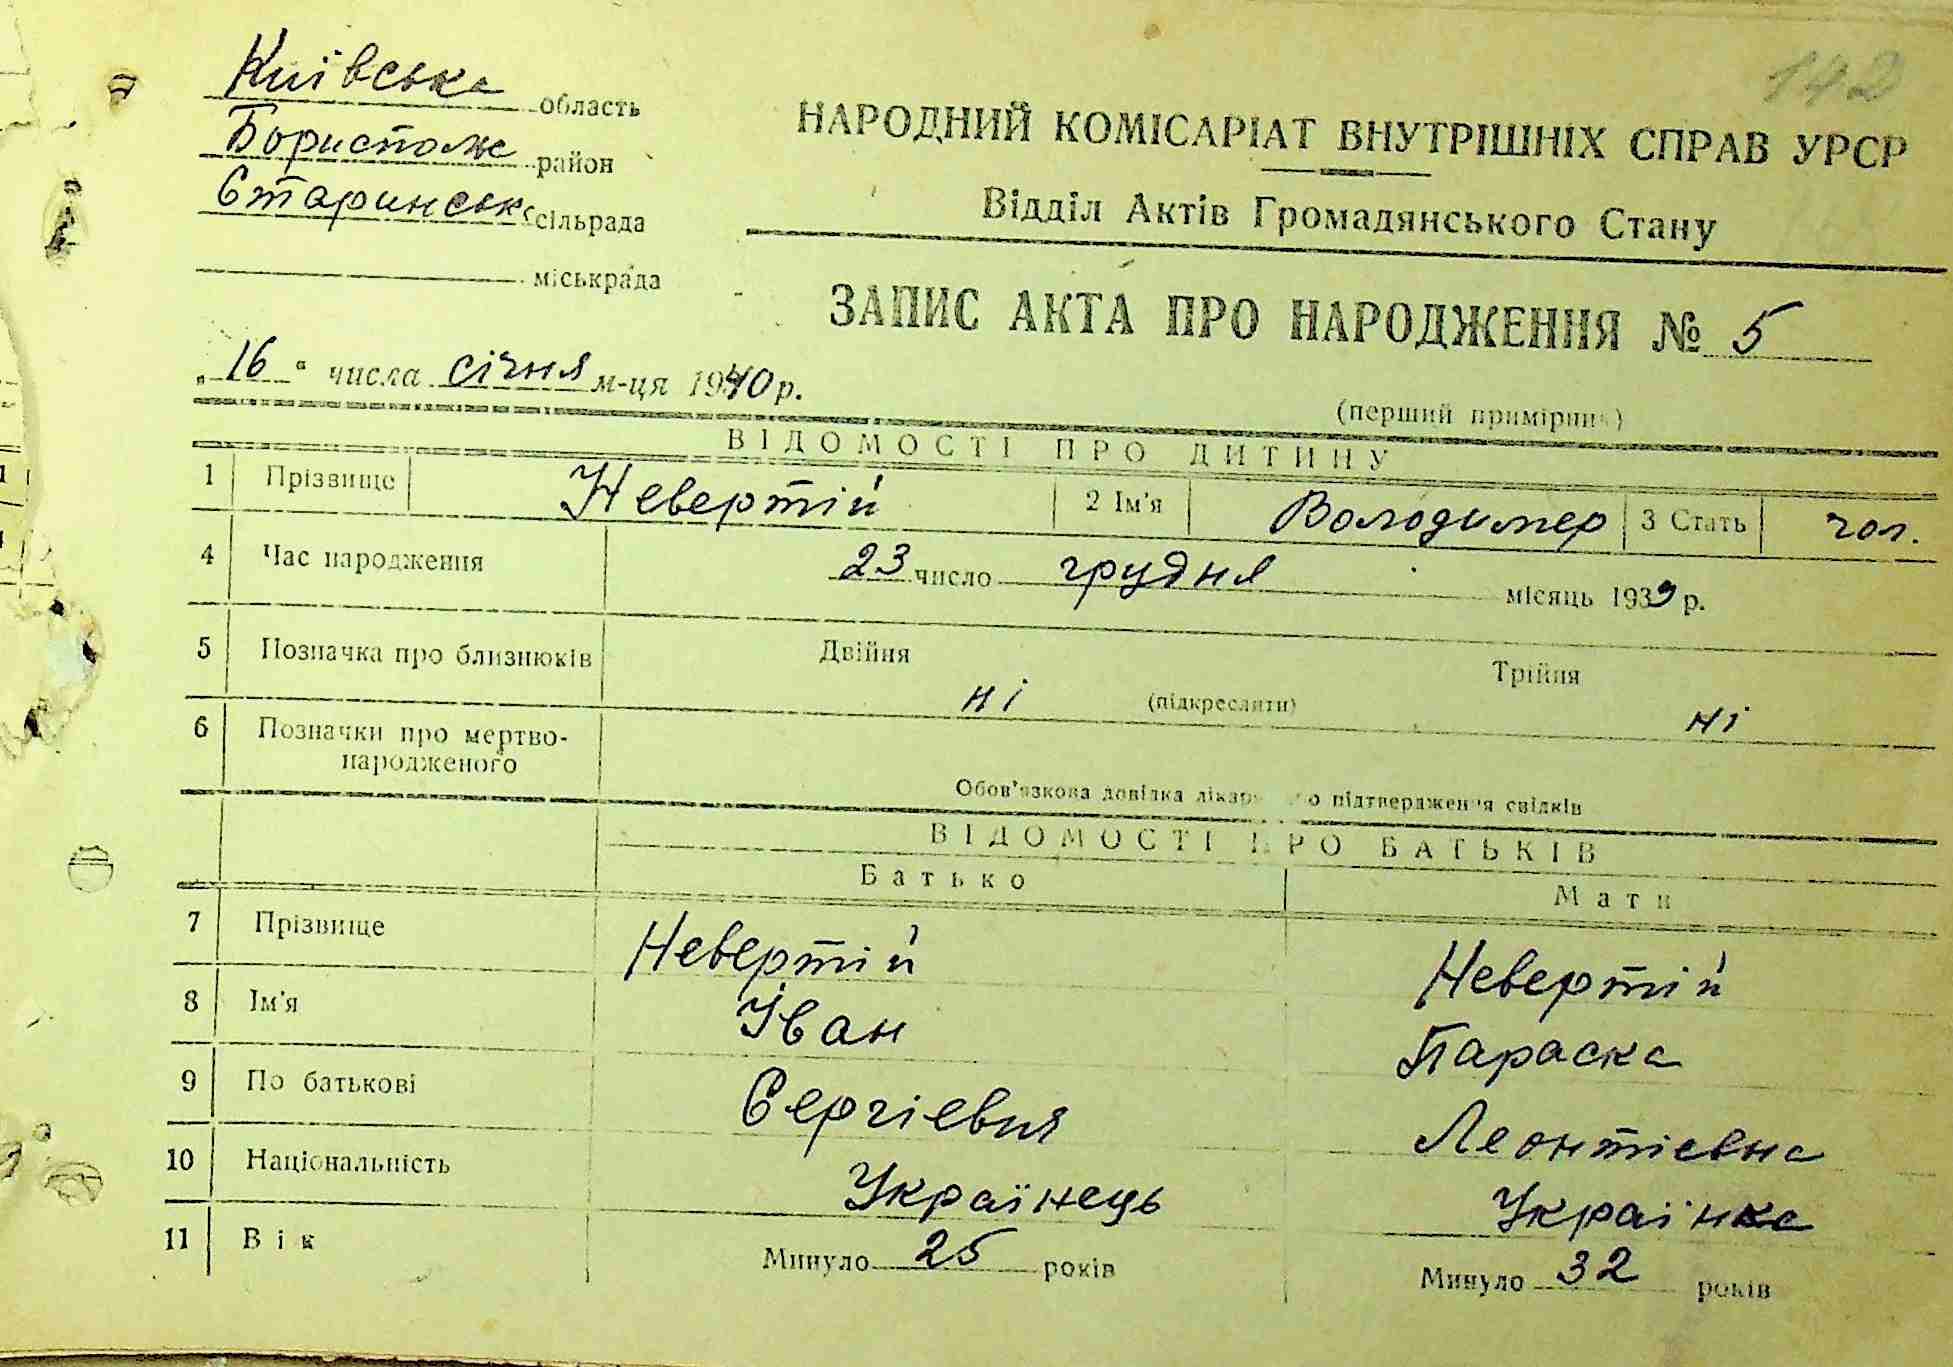 142
Київська область
Бориспольс район
Старинськ сільрада
міськрада
НАРОДНИЙ КОМІСАРІАТ ВНУТРІШНІХ СПРАВ УРСР
Відділ Актів Громадянського Стану
ЗАПИС АКТА ПРО НАРОДЖЕННЯ № 5
„16“ числа січня м-ця 1940 р.
(перший примірник)
ВІДОМОСТІ ПРО ДИТИНУ
1 Прізвище Невертій 2 Ім'я Володимер 3 Стать чол.
4 Час народження 23 число грудня місяць 1939 р.
5 Позначка про близнюків Двійня Трійня
ні (підкреслити) ні
6 Позначки про мертво-
народженого
Обов'язкова довідка лікаря підтвердження свідків
ВІДОМОСТІ ПРО БАТЬКІВ
Батько Мати
7 Прізвище Невертій Невертій
8 Ім'я Іван Параска
9 По батькові Сергієвич Леонтієвна
10 Національність Українець Українка
11 Вік Минуло 25 років Минуло 32 років